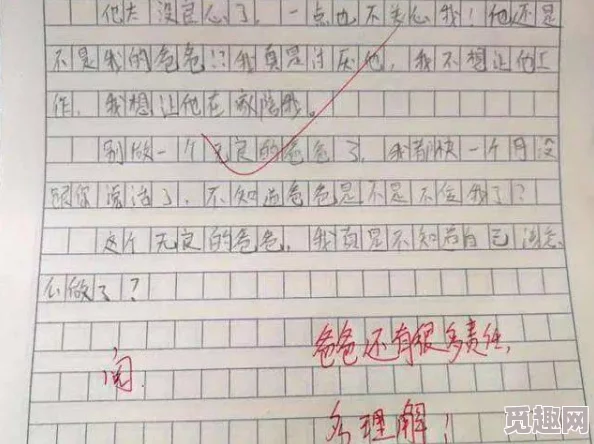 他太没良心了，一点也不关心我！他还是
不是我的爸爸！？我真是讨厌他，我不想让他工
作，我想让他在家陪我。
别做一个无良的爸爸了，我都快一个月没
跟你说话了，不知道爸爸是不是不在我了？
这个无良的爸爸，我真是不知道自己该怎
么做了？
阅
爸爸还有很多责任，
多理解！
觅趣网